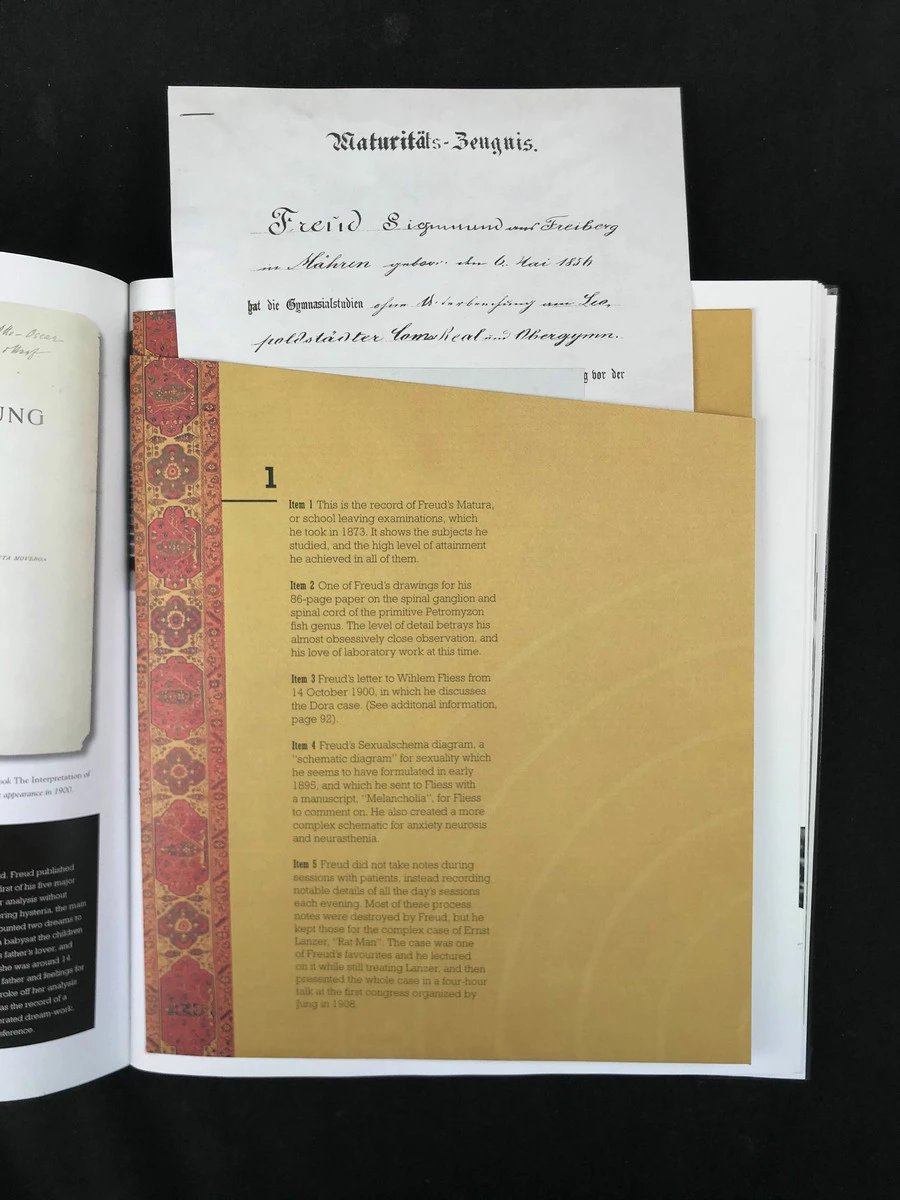 UNG
ok The Interpretation of
appearance in 1900.
d. Freud published
irst of his five major
r analysis without
ring hysteria, the main
ounted two dreams to
babysat the children
father's lover, and
she was around 14.
father and feelings for
roke off her analysis
as the record of a
rated dream-work,
sference.
Maturitäts-Zeugnis.
Freud Sigmund aus Freiberg
in Mähren geboren den 6. Mai 1856
hat die Gymnasialstudien ohne Unterbrechung am Leo,
poldstädter Com. Real und Obergymn.
g vor der
1
Item 1 This is the record of Freud's Matura,
or school leaving examinations, which
he took in 1873. It shows the subjects he
studied, and the high level of attainment
he achieved in all of them.
Item 2 One of Freud's drawings for his
86-page paper on the spinal ganglion and
spinal cord of the primitive Petromyzon
fish genus. The level of detail betrays his
almost obsessively close observation, and
his love of laboratory work at this time.
Item 3 Freud's letter to Wihlem Fliess from
14 October 1900, in which he discusses
the Dora case. (See additonal information,
page 92).
Item 4 Freud's Sexualschema diagram, a
"schematic diagram" for sexuality which
he seems to have formulated in early
1895, and which he sent to Fliess with
a manuscript, "Melancholia", for Fliess
to comment on. He also created a more
complex schematic for anxiety neurosis
and neurasthenia.
Item 5 Freud did not take notes during
sessions with patients, instead recording
notable details of all the day's sessions
each evening. Most of these process
notes were destroyed by Freud, but he
kept those for the complex case of Ernst
Lanzer, "Rat Man". The case was one
of Freud's favourites and he lectured
on it while still treating Lanzer, and then
presented the whole case in a four-hour
talk at the first congress organized by
Jung in 1908.